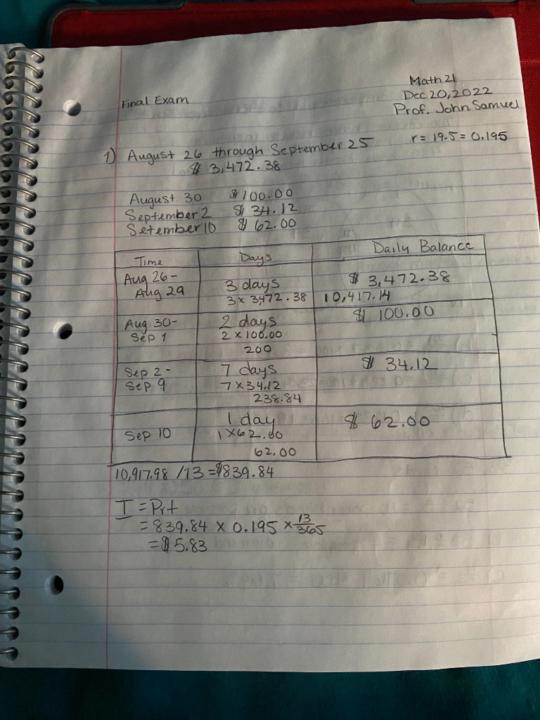 Math 21
Final Exam
Dec 20, 2022
Prof. John Samuel
r = 19.5 = 0.195
1) August 26 through September 25
$ 3,472.38
August 30 $100.00
September 2 $ 34.12
Setember 10 $ 62.00
Time Days Daily Balance
Aug 26 - 3 days $ 3,472.38
Aug 29 3 x 3472.38 10,417.14
Aug 30 - 2 days $ 100.00
Sep 1 2 x 100.00
200
Sep 2 - 7 days $ 34.12
Sep 9 7 x 34.12
238.84
1 day $ 62.00
Sep 10 1 x 62.00
62.00
10,917.98 / 13 = $839.84
I = Prt
= 839.84 x 0.195 x 13/365
= $5.83